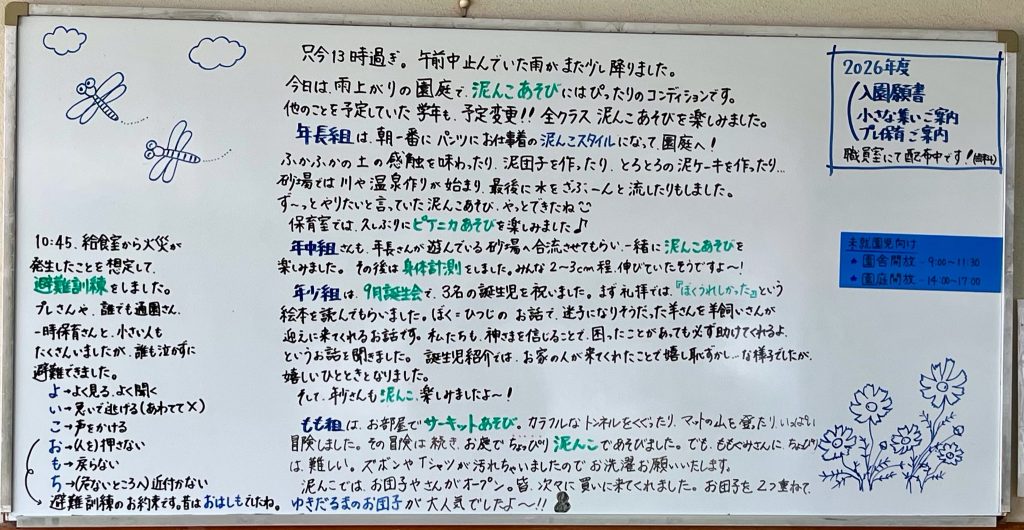 只今13時過ぎ。午前中止んでいた雨がまた少し降りました。
今日は、雨上がりの園庭で、泥んこあそびにはぴったりのコンディションです。
他のことを予定していた学年も、予定変更!! 全クラス泥んこあそびを楽しみました。
年長組は、朝一番にパンツにお仕事着の泥んこスタイルになって、園庭へ!
ふかふかの土の感触を味わったり、泥団子を作ったり、とろとろの泥ケーキを作ったり…
砂場では川や温泉作りが始まり、最後に水をざぶーんと流したりもしました。
ず〜っとやりたいと言っていた泥んこあそび、やっとできたね
保育室では、久しぶりにピタゴラあそびを楽しみました♪
年中組さんも、年長さんが遊んでいる砂場へ合流させてもらい、一緒に泥んこあそびを
楽しみました。その後は身体計測をしました。みんな2〜3cm程、伸びていたそうですよ〜!
年少組は、9月誕生会で、3名の誕生児を祝いました。まず礼拝では、『ぼくうれしかった』という
絵本を読んでもらいました。ぼく=ひつじのお話で、迷子になりそうだった羊さんを羊飼いさんが
迎えに来てくれるお話です。私たちも、神さまを信じることで、困ったことがあっても必ず助けてくれるよ、
というお話を聞きました。誕生児紹介では、お家の人が来てくれたことで嬉し恥ずかし…な様子でしたが、
嬉しいひとときとなりました。
そして、年少さんも泥んこ、楽しみましたよ〜!
もも組は、お部屋でサーキットあそび。カラフルなトンネルをくぐったり、マットの山を登ったり、いっぱい
冒険しました。その冒険は続き、お庭でちょっぴり泥んこであそびました。でも、ももぐみさんに、ちょっぴり
は、難しい。ズボンやTシャツが汚れちゃいましたのでお洗濯お願いいたします。
泥んこでは、お団子やさんがオープン。皆、次々に買いに来てくれました。お団子を2つ重ねて、
ゆきだるまのお団子が大人気でしたよ〜!!
10:45、給食室から火災が
発生したことを想定して、
避難訓練をしました。
プレさんや、誰でも通園さん、
一時保育さんと、小さい人も
たくさんいましたが、誰も泣かずに
避難できました。
よ→よく見る、よく聞く
い→急いで逃げる(あわてて×)
こ→声をかける
お→(人を)押さない
も→戻らない
ち→(危ないところへ)近付かない
避難訓練のお約束です。昔はおはしもでしたね。
2026年度
入園願書
小さな集いご案内
プレ保育ご案内
職員室にて配布中です!(無料)
未就園児向け
★ 園舎開放 - 9:00〜11:30
★ 園庭開放 - 14:00〜17:00